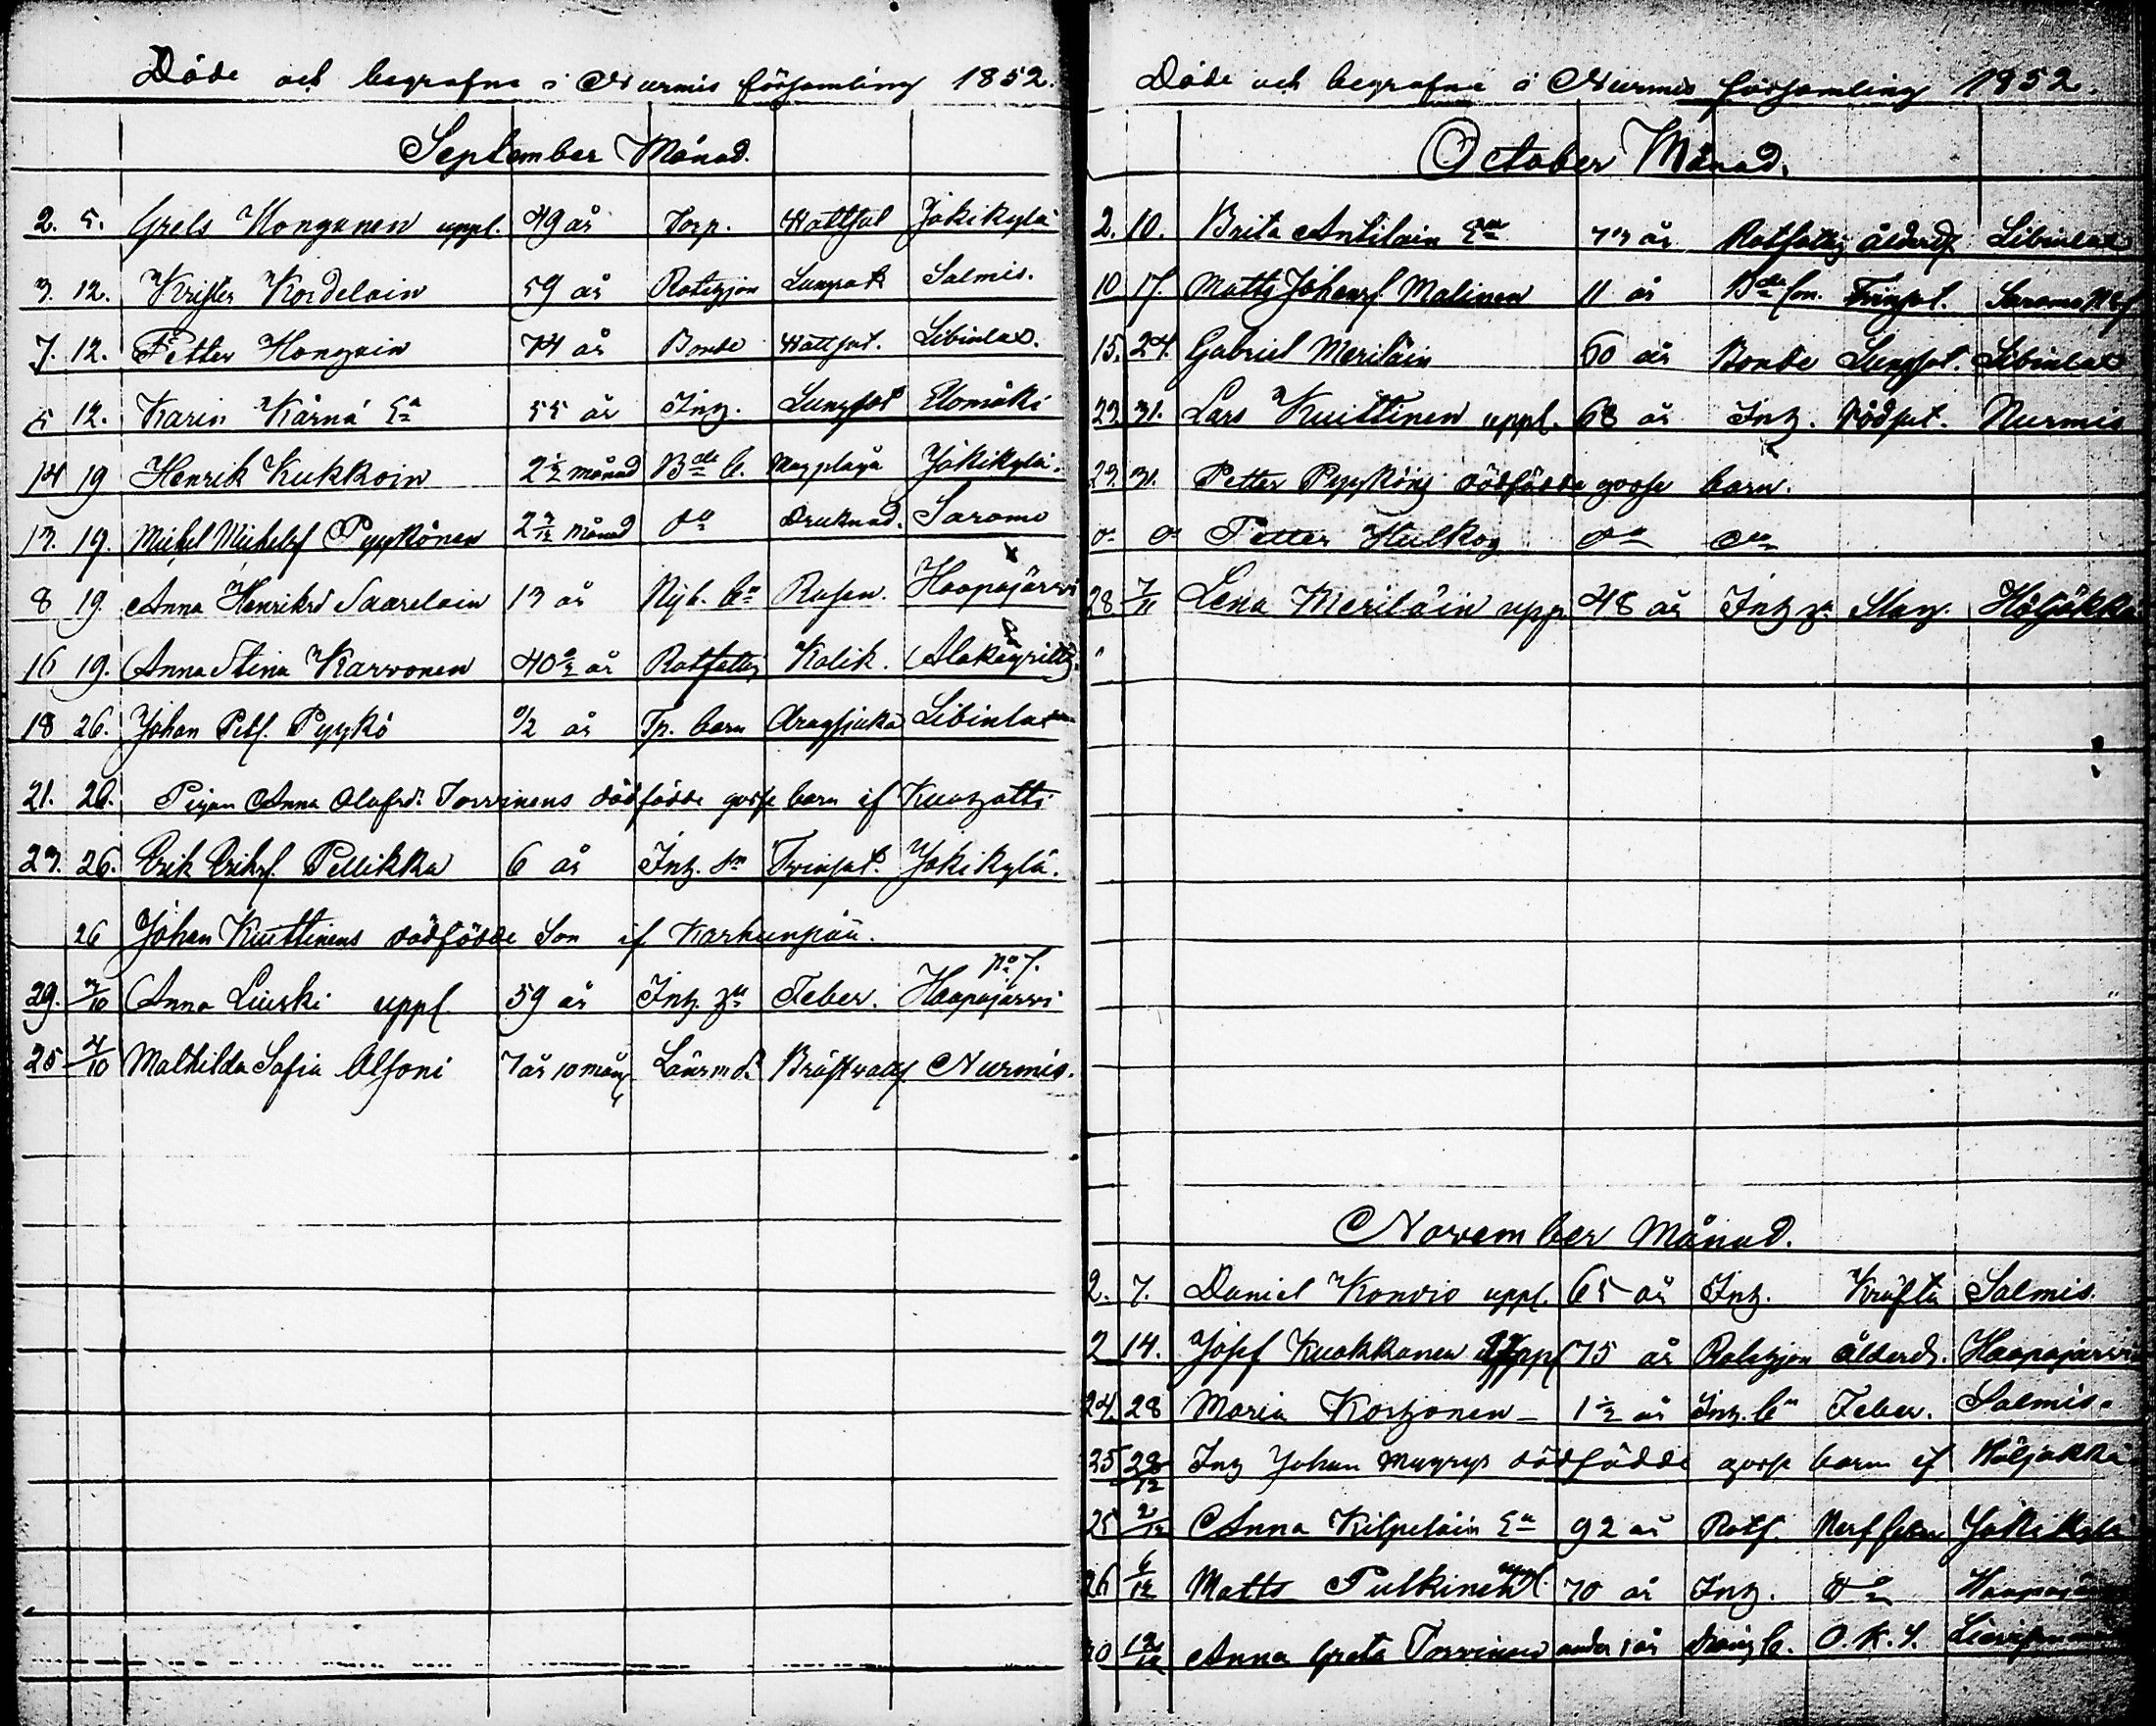 Döde och begrafne i Nurmis församling 1852.
September Månad.
2. 5. Grels Konganen uppl. 49 år Torp. Hållsot Jokikylä
3. 12. Krister Kordelain 59 år Rotehjon Lungsot Salmis.
7. 12. Petter Hongain 74 år Bonde Hållsot. Libinlax.
5 12. Karin Kärnä Ea 55 år Inh. Lungsot Elomäki
14 19 Henrik Kukkoin 2½ månad Bde b. Magplåga Jokikylä.
13. 19. Michel Michelsf Pyykönen 2 månad do Drucknad. Saramo
8 19. Anna Henriksd Saarelain 13 år Nyb. bn Rosen. Haapajärvi
16 19. Anna Stina Karvonen 40 år Rotfattig Kolik.
18 26. Johan Petf. Pyykö ½ år Tp. barn Dragsjuka Libinlax
21. 26. Pigan Anna Olofsdr Torvinens dödfödde gosse barn if Kuohatti
23. 26. Erik Eriksf. Pellikka 6 år Inh. sn Tvinsot. Jokikylä.
26 Johan Kuittinens dödfödde Son if Karhunpää.
No 7.
29. 3/10 Anna Liuski uppl. 59 år Inh. Feber. Haapajärvi
25 4/10 Mathilda Sofia Alfoni 7 år 10 mån Nurmis.
Döde och begrafne i Nurmis församling 1852.
October Månad.
2. 10. Brita Antilain Ea 73 år Rotfattig ålderds. Libinlax
10 17. Matts Johansf. Malinen 11 år Bde son. Tvinsot. Saramo
15. 24. Gabriel Meriläin 60 år Bonde Lungsot. Libinlax
23. 31. Lars Kuittinen uppl. 68 år Inh. Rödsot. Nurmis
23. 31. Petter Pyyköins dödfödde gosse barn.
do do Petter Hulkos do do
28. 7/11 Lena Meriläin upp. 48 år Inh. Slag. Höljäkkä
November Månad.
2. 7. Daniel Konvio uppl. 65 år Inh. Kräfta Salmis.
2 14. Josef Kuokkanen uppl 75 år Rotehjon ålderds. Haapajärvi
24. 28 Maria Korhonen 1½ år Inh. bn Feber. Salmis.
25 28/12 Inh Johan Mugrys dödfödde gosse barn if Höljäkkä.
25 2/12 Anna Kilpeläin Ea 92 år Rotf. Nerffeber Jokikylä
26 6/12 Matts Pulkinen uppl. 70 år Inh. do
Anna Greta Torvinen under 1 år Dräng b. O. K. S.